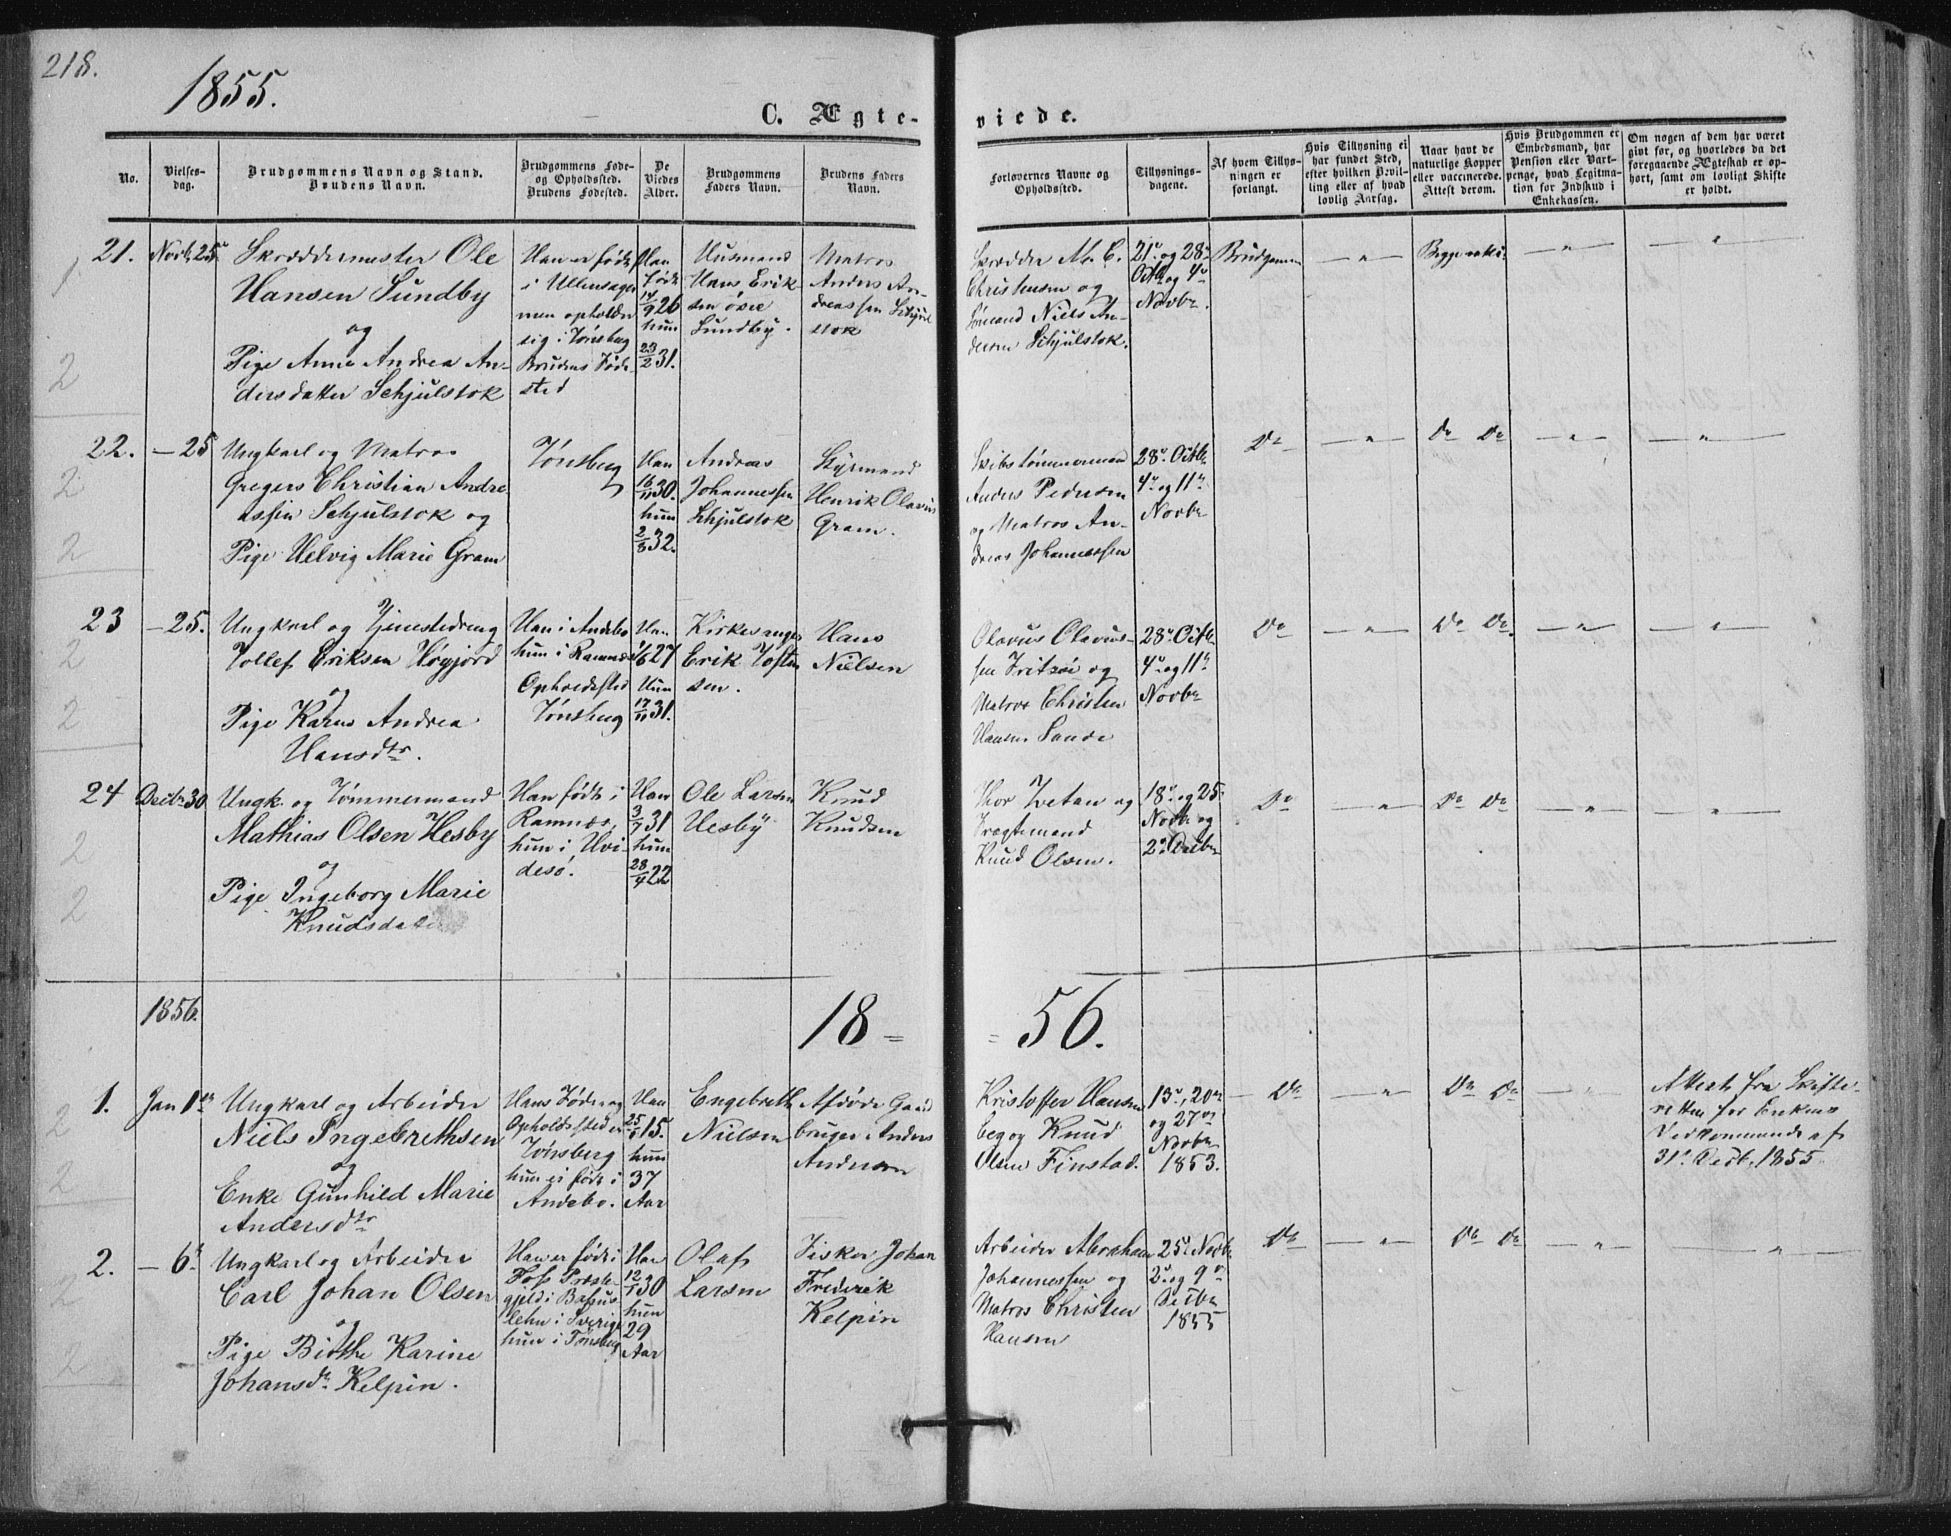 218.
1855.
C. Ægte-
viede.
No.
Vielses-
dag.
Brudgommens Navn og Stand.
Brudens Navn.
Brudgommens Føde-
og Opholdssted.
Brudens Fødested.
De
Viedes
Alder.
Brudgommens
Faders Navn.
Brudens Faders
Navn.
Forlovernes Navne og
Opholdssted.
Tillysnings-
dagene.
Af hvem Tillys-
ningen er
forlangt.
Hvis Tillysning ei
har fundet Sted,
efter hvilken Bevil-
ling eller af hvad
lovlig Aarsag.
Naar havt de
naturlige Kopper
eller vaccinerede.
Attest derom.
Hvis Brudgommen er
Embedsmand, har
Pension eller Vart-
penge, hvad Legitima-
tion for Indskud i
Enkekassen.
Om nogen af dem har været
givt før, og hvorledes da det
foregaaende Ægteskab er op-
hørt, samt om lovligt Skifte
er holdt.
21.
Novb 25
Skræddermester Ole
Hansen Sundby
og
Pige Anne Andrea An-
dersdatter Schjulstok
Han er født
i Ullensager
men opholder
sig i Tønsberg
Brudens Føde-
sted
Han
født
14/9 26
hun
23/2 31.
Husmand
Hans Erik-
sen øvre
Sundby.
Matros
Anders An-
dreassen Schjul
stok
Skrædder M. C.
Christensen og
Sømand Niels An-
dersen Schjulstok.
21 og 28
Octb og 4
Novbr.
Brudgommen
Begge vakc.
— " —
22.
— 25
Ungkarl og Matros
Gregers Christian Andre
assen Schjulstok og
Pige Helvig Marie Gram
Tønsberg
Han
16/11 30.
hun
2/8 32.
Andreas
Johannessen
Schjulstok
Styrmand
Henrik Olavius
Gram.
Skibstømmermand
Anders Pedersen
og Matros An-
dreas Johannessen
28 Octbr
4 og 11
Novbr
Do
— " —
Do Do
— " —
— " —
23
— 25.
Ungkarl og Tjenestedreng
Tollef Eriksen Høyjord
og
Pige Karen Andrea
Hansdtr.
Han i Andebo
hun i Ramnæs
Opholdssted
Tønsberg
Han
27
Hun
17/11 31.
Kirkesanger
Erik Tosten
sen.
Hans
Nielsen
Olavus Olavus-
sen Fritsøe og
Matros Christen
Hansen Sande
28 Octb
4 og 11
Novbr
Do
— " —
Do Do.
— " —
— " —
24
Decbr 30
Ungk. og Tømmermand
Mathias Olsen Hesby
og
Pige Ingeborg Marie
Knudsdatter
Han født i
Ramnæs,
hun i Hvi-
desø.
Han
3/7 31
hun
28/4 22
Ole Larsen
Hesby
Knud
Knudsen
Thor Zvetan og
Fragtemand
Knud Olsen.
18 og 25
Novbr og
2 Decbr
Do
— " —
Do Do
— " —
— " —
1856.
18 =
= 56.
1.
Jan 1
Ungkarl og Arbeider
Niels Ingebrethsen
og
Enke Gunhild Marie
Andersdtr
Hans Føde og
Opholdssted er
Tønsberg
hun er født i
Andebo.
Han
15.
hun
37
Aar
Engebreth
Nielsen
Afdøde Gaard
bruger Anders
Andersen
Kristoffer Hansen
og Knud
Olsen Finstad.
13, 20
og 27
Novbr
1853.
— Do
— " —
Do Do
— " —
Attest fra Skifte-
retten for Enkens
Vedkommende af
31 Decb. 1855
2.
— 6
Ungkarl og Arbeider
Carl Johan Olsen
og
Pige Birthe Karine
Johansdr Kelpin.
Han er født i
Foss Præste-
gjeld i Bahus
lehn i Sverige
hun i Tønsberg
Han
12/1 30
hun
29
Aar
Olaf
Larsen
Fisker Johan
Frederik
Kelpin
Arbeider Abraham
Johannessen og
Matros Christen
Hansen
25 Novbr
2 og 9
Decbr
1855
Do
— " —
Do Do
— " —
— " —